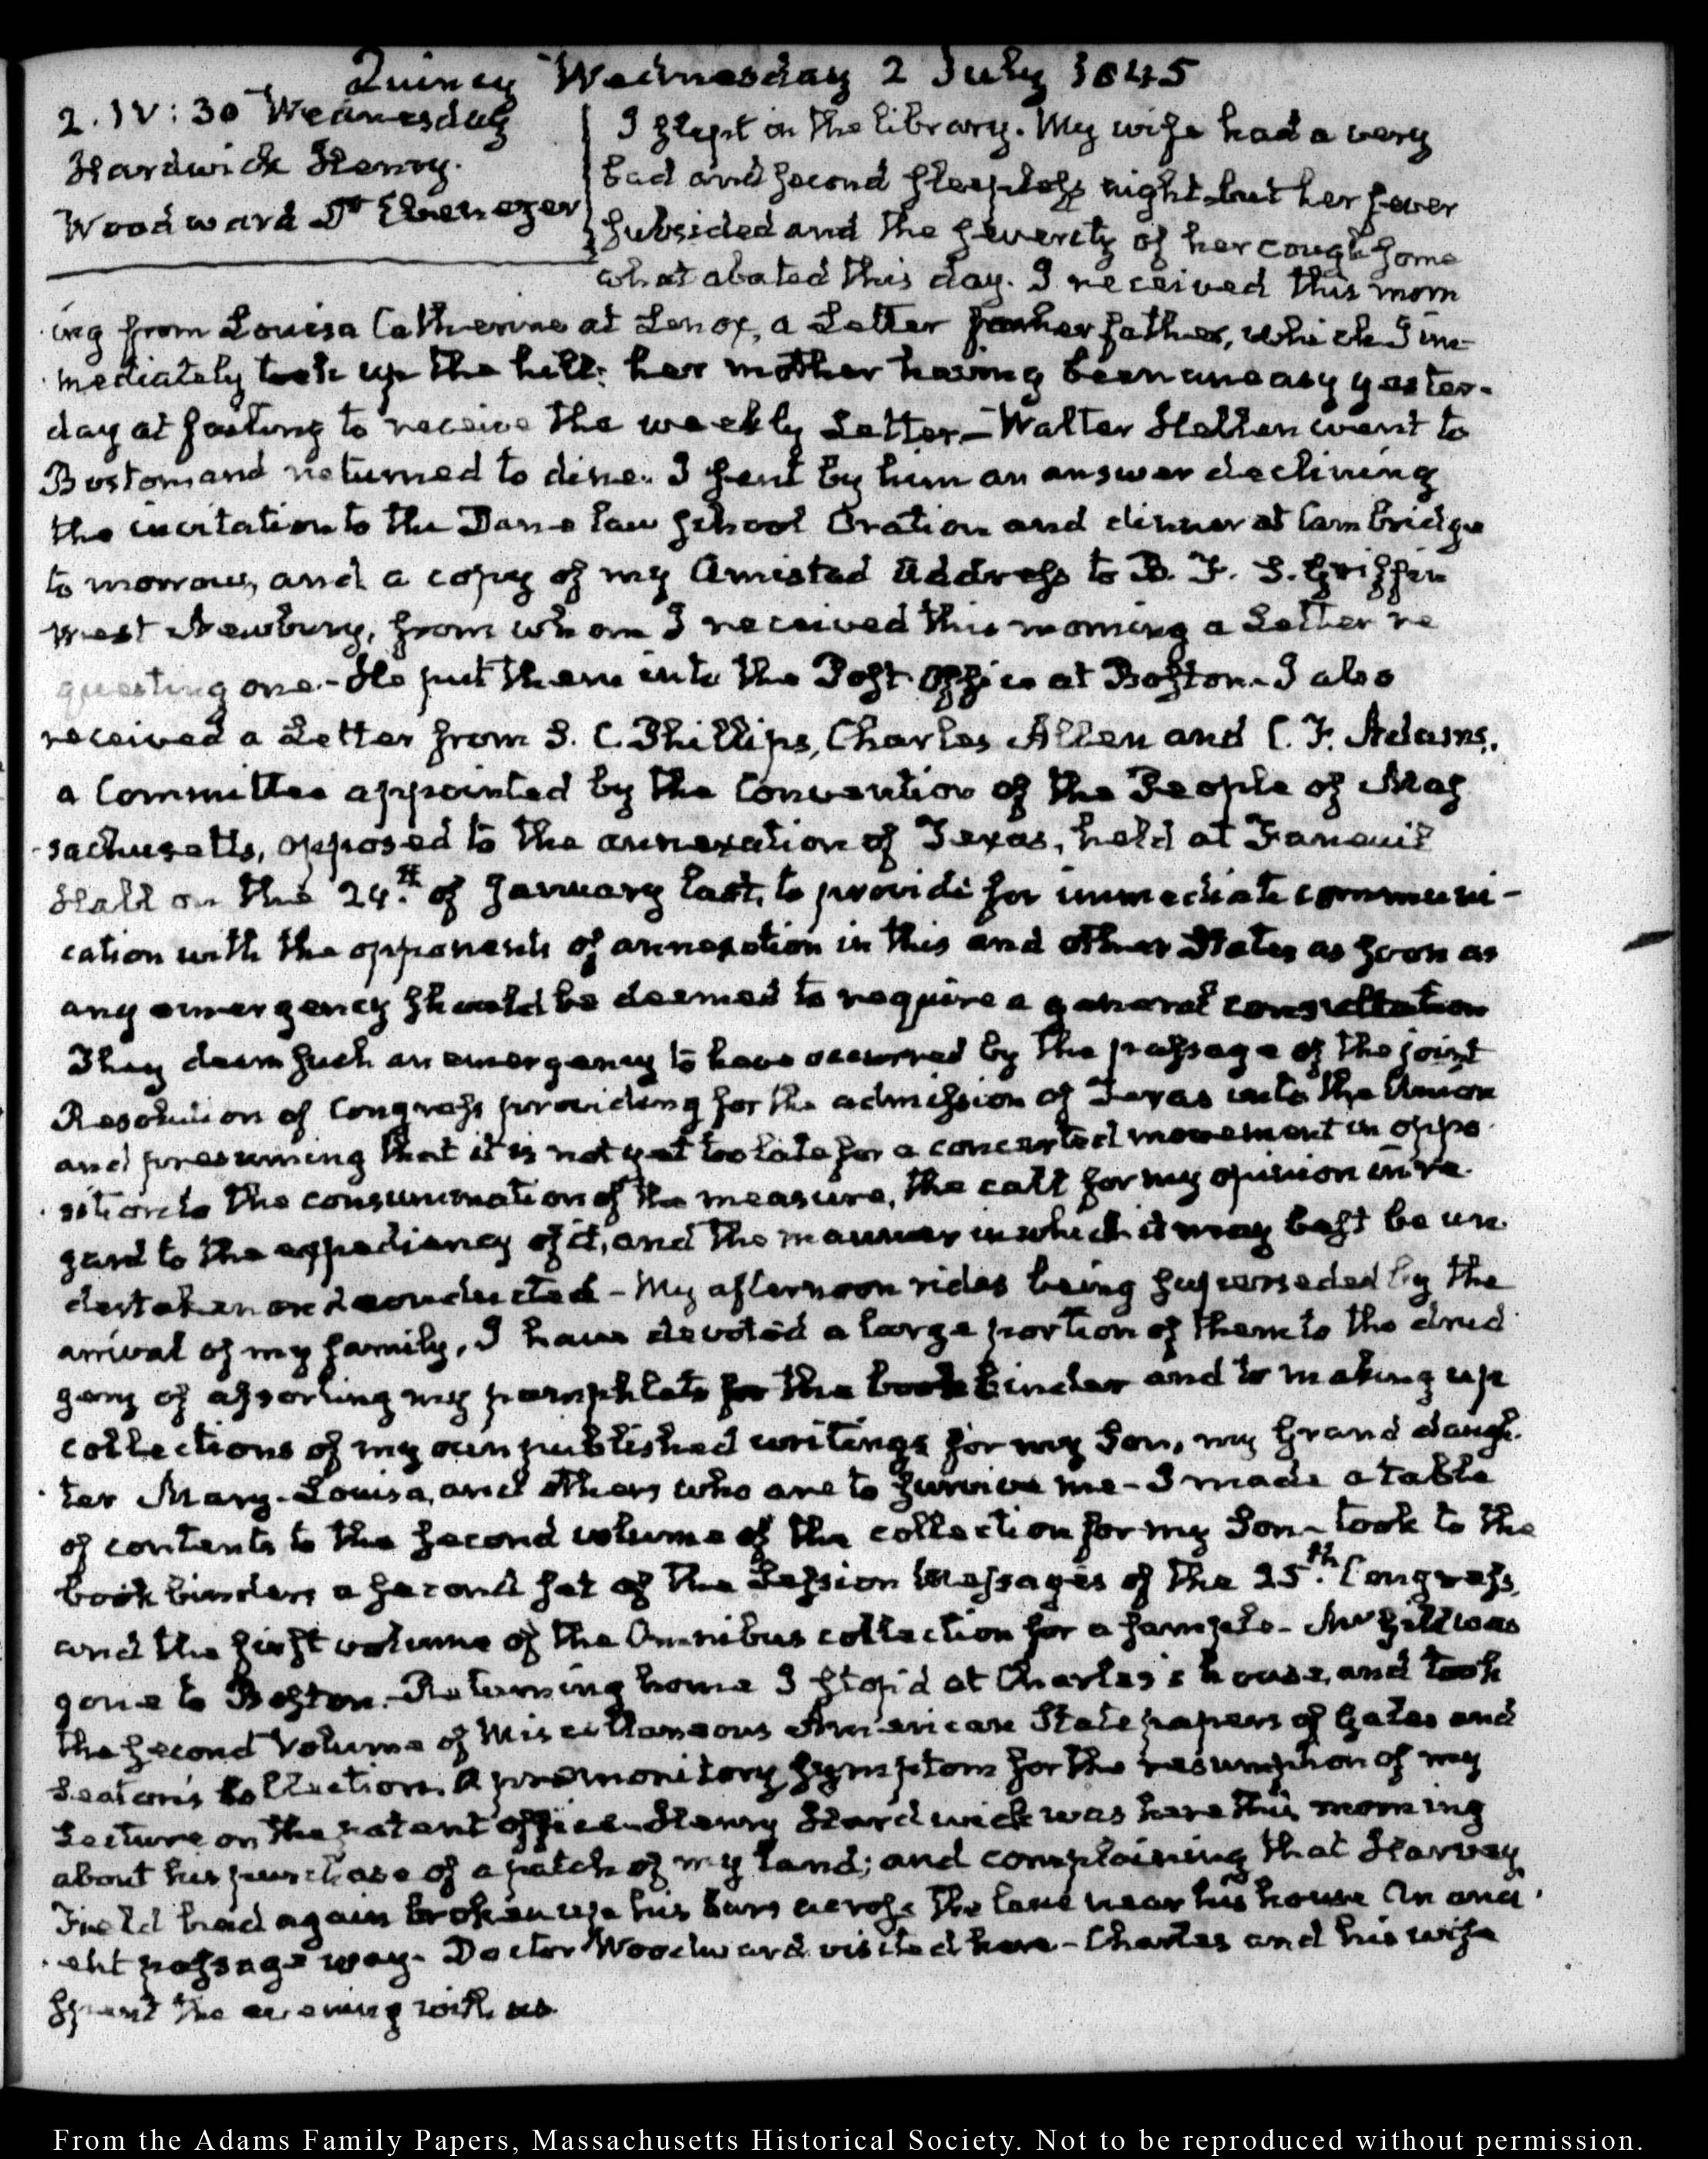 Quincy Wednesday 2 July 1845
2. IV: 30 Wednesday
Hardwick Henry.
Woodward Dr. Ebenezer
I slept in the library. My wife had a very
bad and second sleepless night, but her fever
subsided and the severity of her cough some
what abated this day. I received this morn
ing from Louisa Catherine at Lenox, a Letter for her father, which I im-
mediately took up the hill: her mother having been uneasy yester-
day at failing to receive the weekly Letter — Walter Hellen went to
Boston and returned to dine. I sent by him an answer declining
the invitation to the Dane law school Oration and dinner at Cambridge
to morrow, and a copy of my Amistad Address to B. F. S. Griffin
West Newbury, from whom I received this morning a Letter re
questing one - He put them into the Post-Office at Boston. I also
received a Letter from S. C. Phillips, Charles Allen and C. F. Adams,
a Committee appointed by the Convention of the People of Mas
sachusetts, opposed to the annexation of Texas, held at Faneuil
Hall on the 24th. of January last, to provide for immediate communi-
cation with the opponents of annexation in this and other States as soon as
any emergency should be deemed to require a general consultation
They deem such an emergency to have occurred by the passage of the joint
Resolution of Congress providing for the admission of Texas into the Union
and presuming that it is not yet too late for a concerted movement in oppo
sition to the consummation of the measure, the call for my opinion in re
gard to the expediency of it, and the manner in which it may best be un
dertaken and conducted - My afternoon rides being superseded by the
arrival of my family, I have devoted a large portion of them to the drud
gery of assorting my pamphlets for the book binder and to making up
collections of my own published writings for my Son, my Grand daugh
ter Mary-Louisa, and others who are to survive me - I made a table
of contents to the second volume of the collection for my Son - took to the
book binders a second set of the Session Messages of the 25th. Congress,
and the first volume of the Omnibus collection for a sample - Mr Gill was
gone to Boston. Returning home I stop'd at Charles's house, and took
the second Volume of Miscellaneous American State papers of Gales and
Seaton's Collection. A premonitory symptom for the resumption of my
Lecture on the patent office. Henry Hardwick was here this morning
about his purchase of a patch of my land; and complaining that Harvey
Field had again broken up his bars across the lane near his house An anci
ent passage way - Doctor Woodward visited here - Charles and his wife
spent the evening with us.
From the Adams Family Papers, Massachusetts Historical Society. Not to be reproduced without permission.